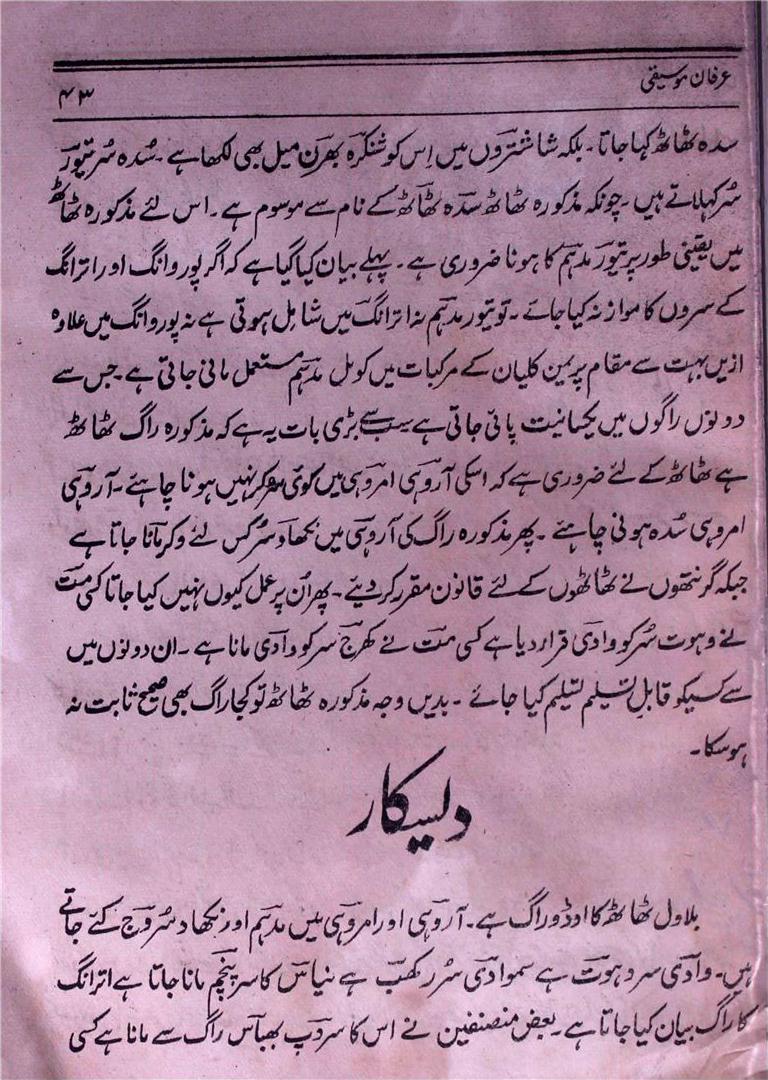 عرفان موسیقی
۴۳
سدہ ٹھاٹھ کہا جاتا۔ بلکہ شاشتروں میں اِس کو شنکرہ بھرن میل بھی لکھا ہے۔ سُدہ سُر تیور
سُر کہلاتے ہیں۔ چونکہ مذکورہ ٹھاٹھ سدہ ٹھاٹھ کے نام سے موسوم ہے۔ اس لئے مذکورہ ٹھاٹھ
میں یقینی طور پر تیور مدہم کا ہونا ضروری ہے۔ پہلے بیان کیا گیا ہے کہ اگر پوروانگ اور اترانگ
کے سروں کا موازنہ کیا جائے۔ تو تیور مدہم نہ اترانگ میں شامل ہوتی ہے نہ پوروانگ میں علاوہ
ازیں بہت سے مقام پر یمن کلیان کے مرکبات میں کومل مدہم مستعمل مانی جاتی ہے جس سے
دونوں راگوں میں یکسانیت پائی جاتی ہے سب سے بڑی بات یہ ہے کہ مذکورہ راگ ٹھاٹھ
ہے ٹھاٹھ کے لئے ضروری ہے کہ اسکی آروہی امروہی میں کوئی سُر وکر نہیں ہونا چاہئے۔ آروہی
امروہی سُدہ ہونی چاہئے۔ پھر مذکورہ راگ کی آروہی میں نکھاد سُر کس لئے وکر مانا جاتا ہے
جبکہ گرنتھوں نے ٹھاٹھوں کے لئے قانون مقرر کر دیئے۔ پھر اُن پر عمل کیوں نہیں کیا جاتا کسی مت
نے دہوت سُر کو وادی قرار دیا ہے کسی مت نے کھرج سر کو وادی مانا ہے۔ ان دونوں میں
سے کسیکو قابلِ تسلیم تسلیم کیا جائے۔ بدیں وجہ مذکورہ ٹھاٹھ تو کجا راگ بھی صحیح ثابت نہ
ہوسکا۔
دیسکار
بلاول ٹھاٹھ کا اوڈو راگ ہے۔ آروہی اور امروہی میں مدہم اور نکھاد سُر وَرج کئے جاتے
ہیں۔ وادی سر دہوت ہے سموادی سُر رکھب ہے نیاس کا سر پنچم مانا جاتا ہے اترانگ
کا راگ بیان کیا جاتا ہے۔ بعض منصنفین نے اس کا سروپ بھباس راگ سے مانا ہے کسی